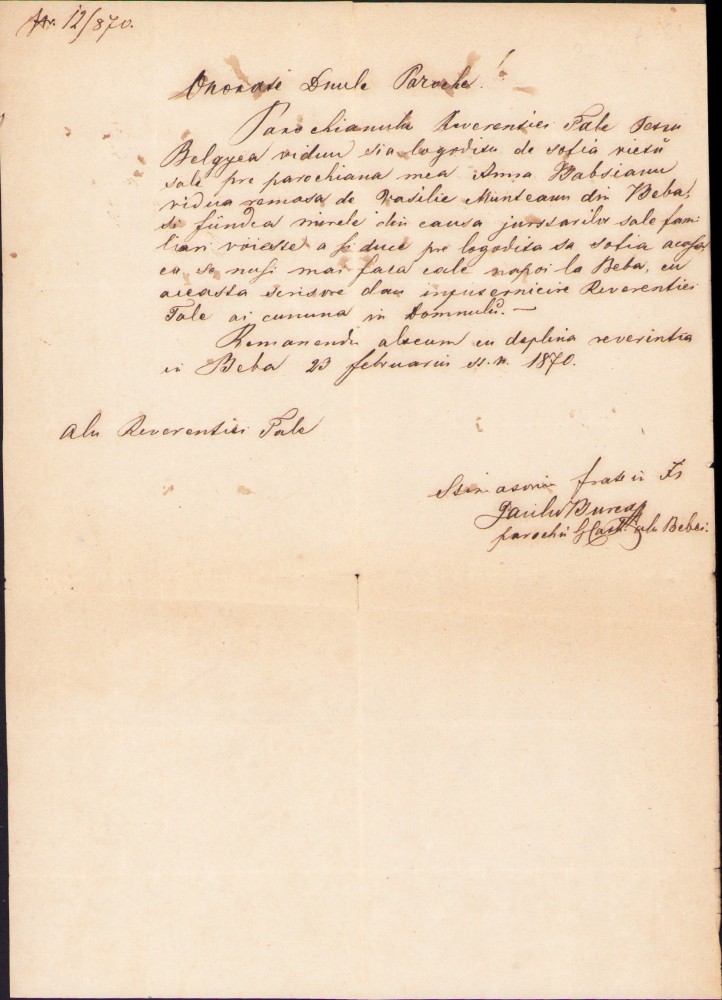 Nr. 12/870.
Onorate Dnule Paroche!
Parochianulu Reverentiei Tale Petru
Belgyea viduu sia logoditu de sotia vietii
sale pre parochiana mea Anna Babsianu
vidua remasa de Vasilie Munteanu din Beba,
si fiindca mirele din causa jurstarilor sale fami-
liari voieste a si duce pre logodita sa sotia acasa,
ca sa nusi mai faca cale napoi la Beba, cu
aceasta scrisore dau inputernicire Reverentiei
Tale ai cununa in Domnulu. —
Remanendu alscum cu deplina reverintia
in Beba 23 februariu st. n. 1870.
Alu Reverentiei Tale
Stimatoriu frate in Xs
parochu alu Bebei.